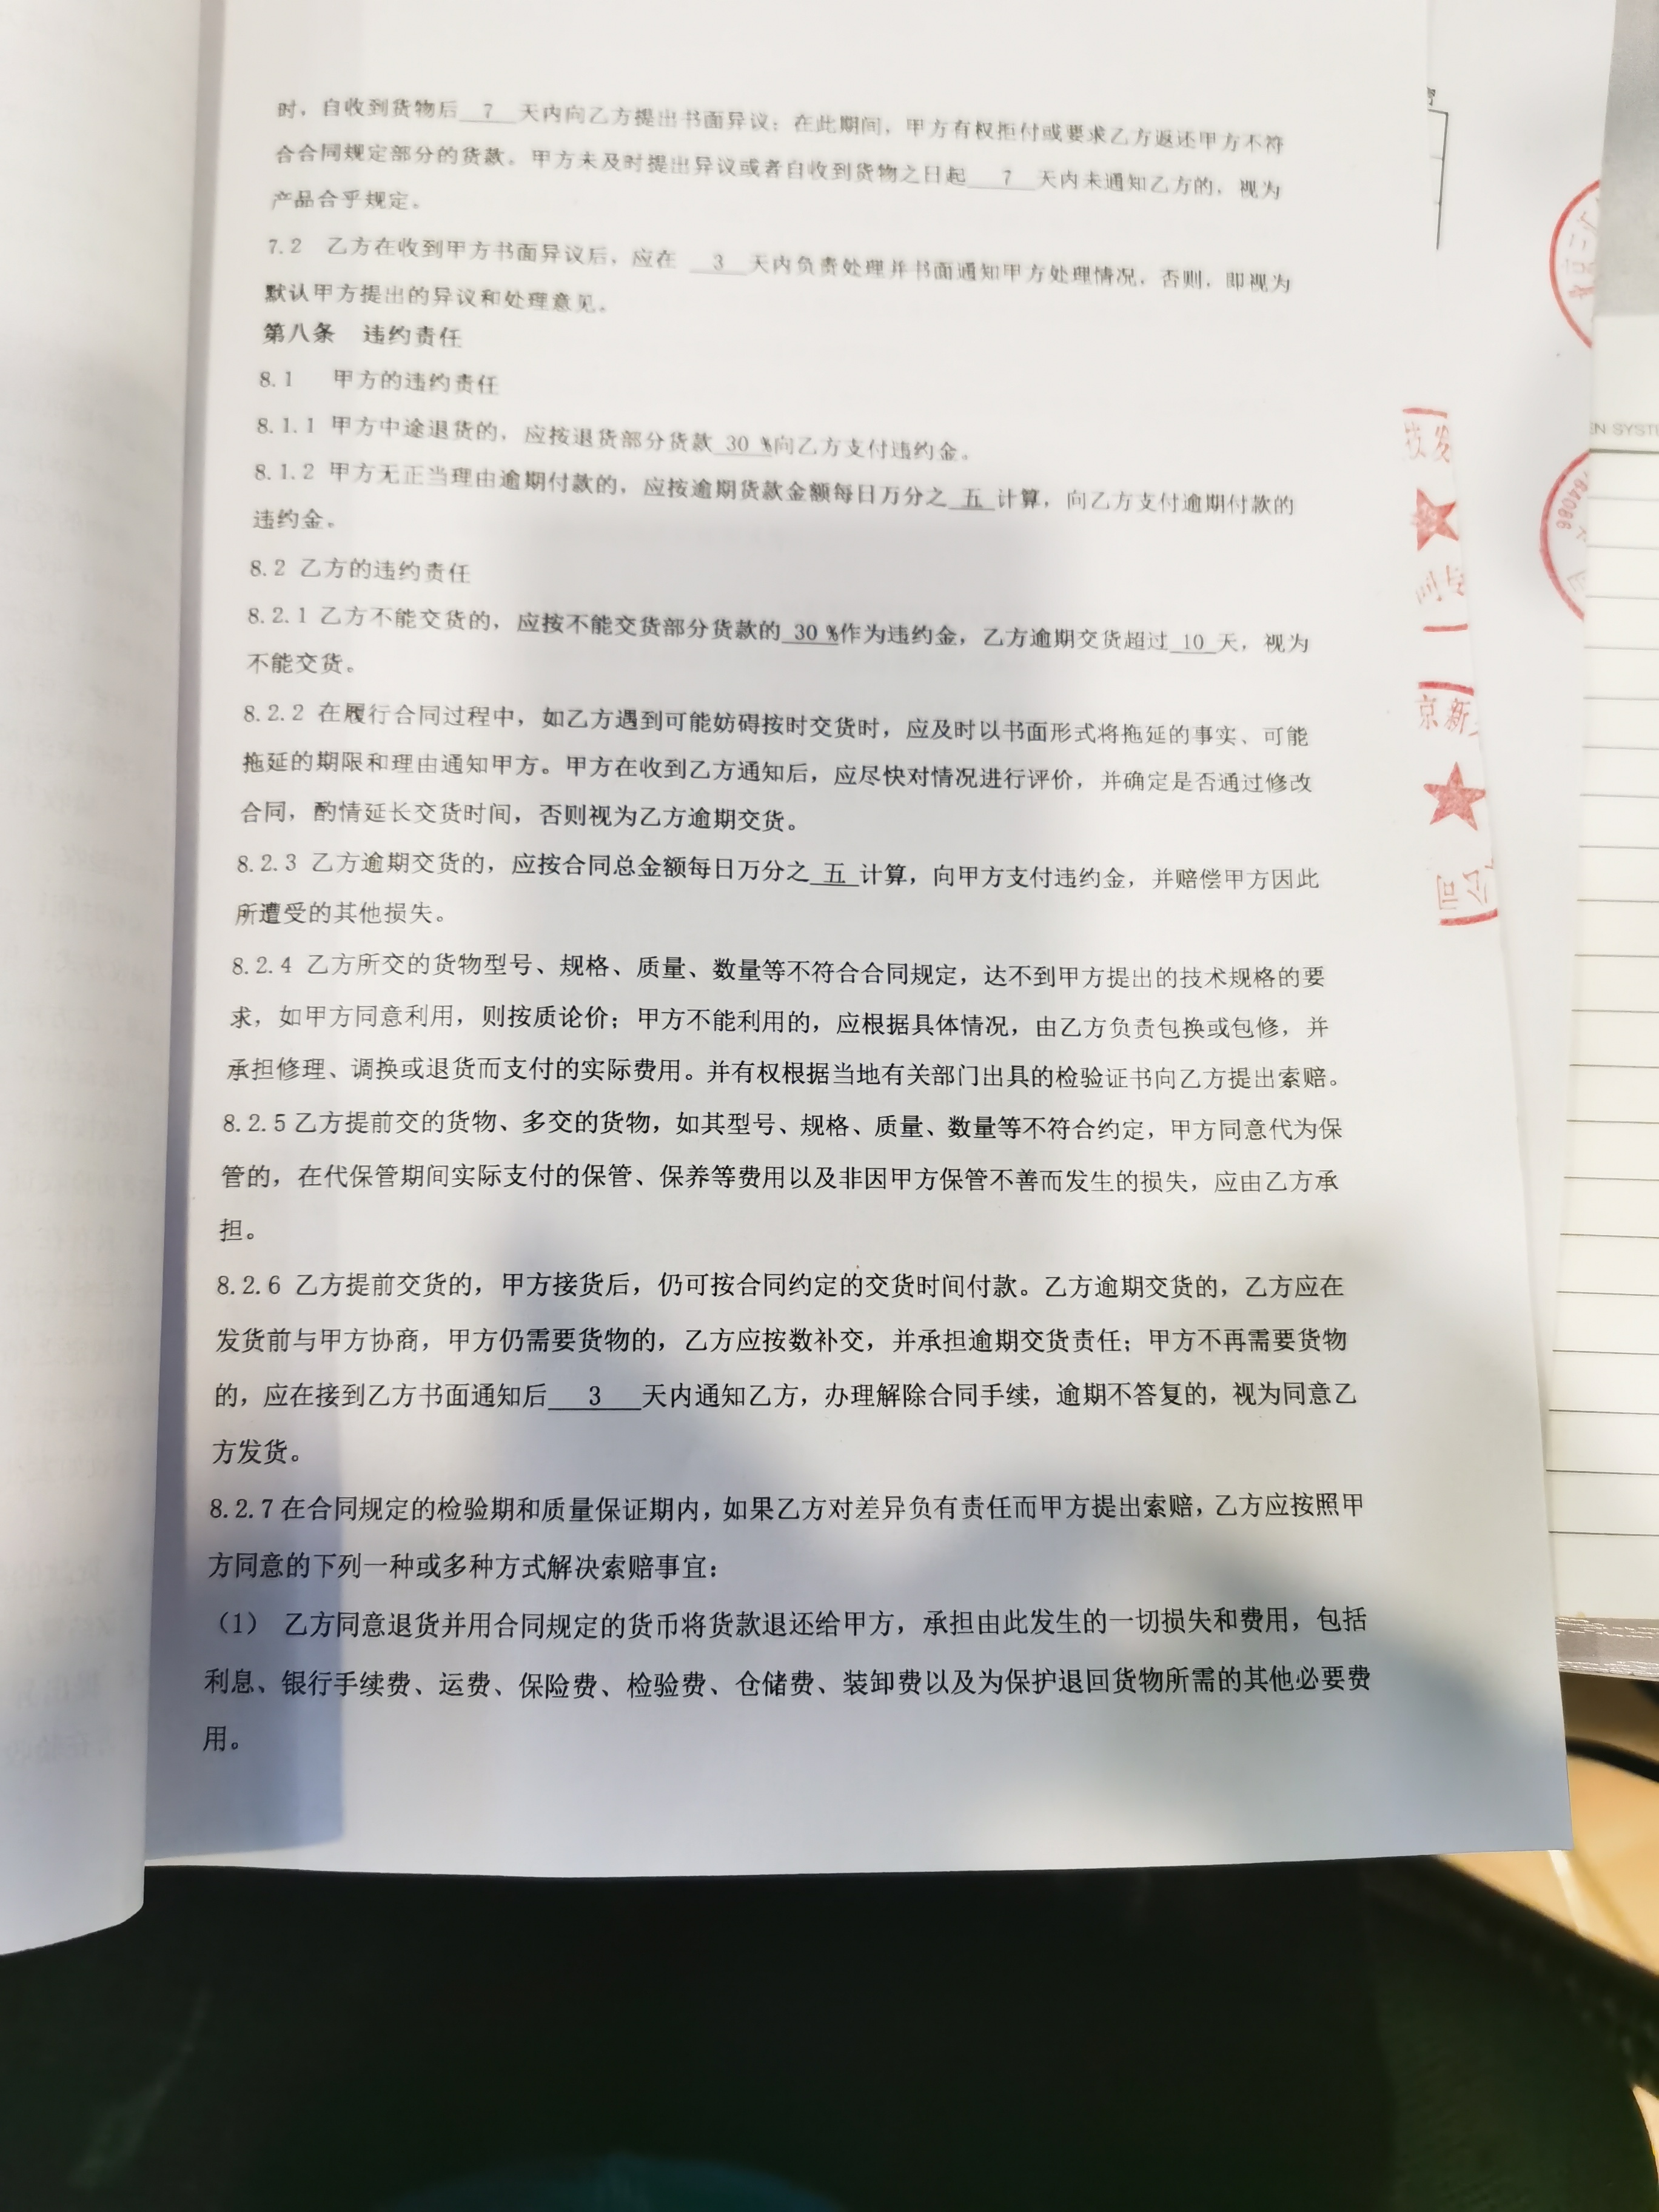 时，自收到货物后 7 天内向乙方提出书面异议；在此期间，甲方有权拒付或要求乙方返还甲方不符
合合同规定部分的货款。甲方未及时提出异议或者自收到货物之日起 7 天内未通知乙方的，视为
产品合乎规定。
7.2 乙方在收到甲方书面异议后，应在 3 天内负责处理并书面通知甲方处理情况，否则，即视为
默认甲方提出的异议和处理意见。
第八条 违约责任
8.1 甲方的违约责任
8.1.1 甲方中途退货的，应按退货部分货款 30 %向乙方支付违约金。
8.1.2 甲方无正当理由逾期付款的，应按逾期货款金额每日万分之 五 计算，向乙方支付逾期付款的
违约金。
8.2 乙方的违约责任
8.2.1 乙方不能交货的，应按不能交货部分货款的 30 %作为违约金，乙方逾期交货超过 10 天，视为
不能交货。
8.2.2 在履行合同过程中，如乙方遇到可能妨碍按时交货时，应及时以书面形式将拖延的事实、可能
拖延的期限和理由通知甲方。甲方在收到乙方通知后，应尽快对情况进行评价，并确定是否通过修改
合同，酌情延长交货时间，否则视为乙方逾期交货。
8.2.3 乙方逾期交货的，应按合同总金额每日万分之 五 计算，向甲方支付违约金，并赔偿甲方因此
所遭受的其他损失。
8.2.4 乙方所交的货物型号、规格、质量、数量等不符合合同规定，达不到甲方提出的技术规格的要
求，如甲方同意利用，则按质论价；甲方不能利用的，应根据具体情况，由乙方负责包换或包修，并
承担修理、调换或退货而支付的实际费用。并有权根据当地有关部门出具的检验证书向乙方提出索赔。
8.2.5 乙方提前交的货物、多交的货物，如其型号、规格、质量、数量等不符合约定，甲方同意代为保
管的，在代保管期间实际支付的保管、保养等费用以及非因甲方保管不善而发生的损失，应由乙方承
担。
8.2.6 乙方提前交货的，甲方接货后，仍可按合同约定的交货时间付款。乙方逾期交货的，乙方应在
发货前与甲方协商，甲方仍需要货物的，乙方应按数补交，并承担逾期交货责任；甲方不再需要货物
的，应在接到乙方书面通知后 3 天内通知乙方，办理解除合同手续，逾期不答复的，视为同意乙
方发货。
8.2.7 在合同规定的检验期和质量保证期内，如果乙方对差异负有责任而甲方提出索赔，乙方应按照甲
方同意的下列一种或多种方式解决索赔事宜：
（1） 乙方同意退货并用合同规定的货币将货款退还给甲方，承担由此发生的一切损失和费用，包括
利息、银行手续费、运费、保险费、检验费、仓储费、装卸费以及为保护退回货物所需的其他必要费
用。
技发
京新
公司